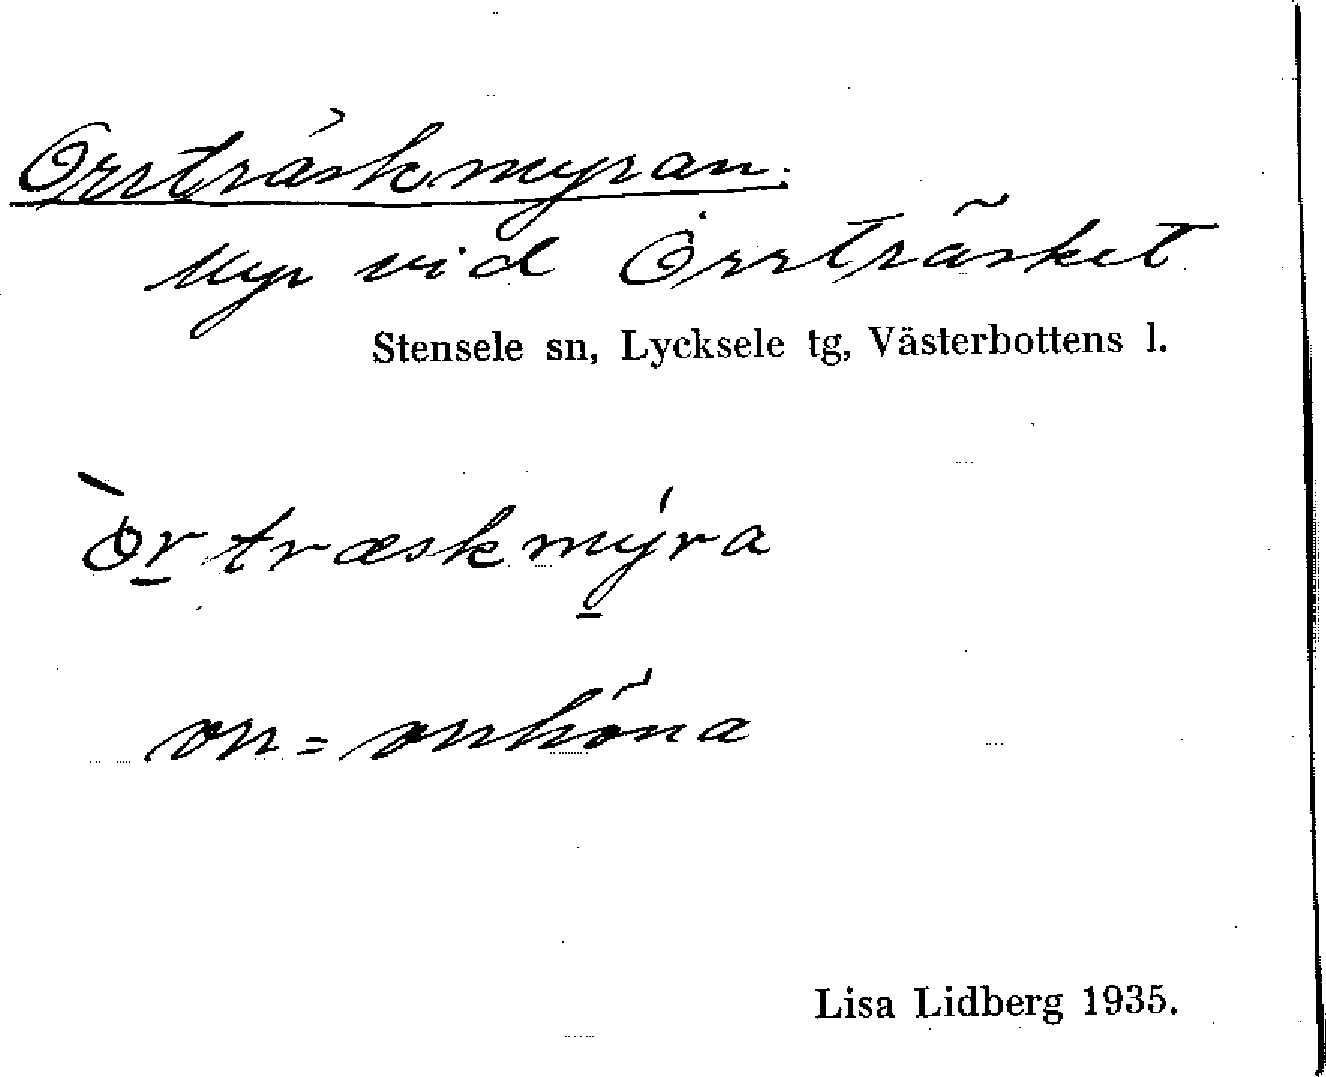 Orrträskmyran.
Myr vid Orrträsket
Stensele sn, Lycksele tg, Västerbottens l.
òr træskmýra
orr = orrhöna
Lisa Lidberg 1935.